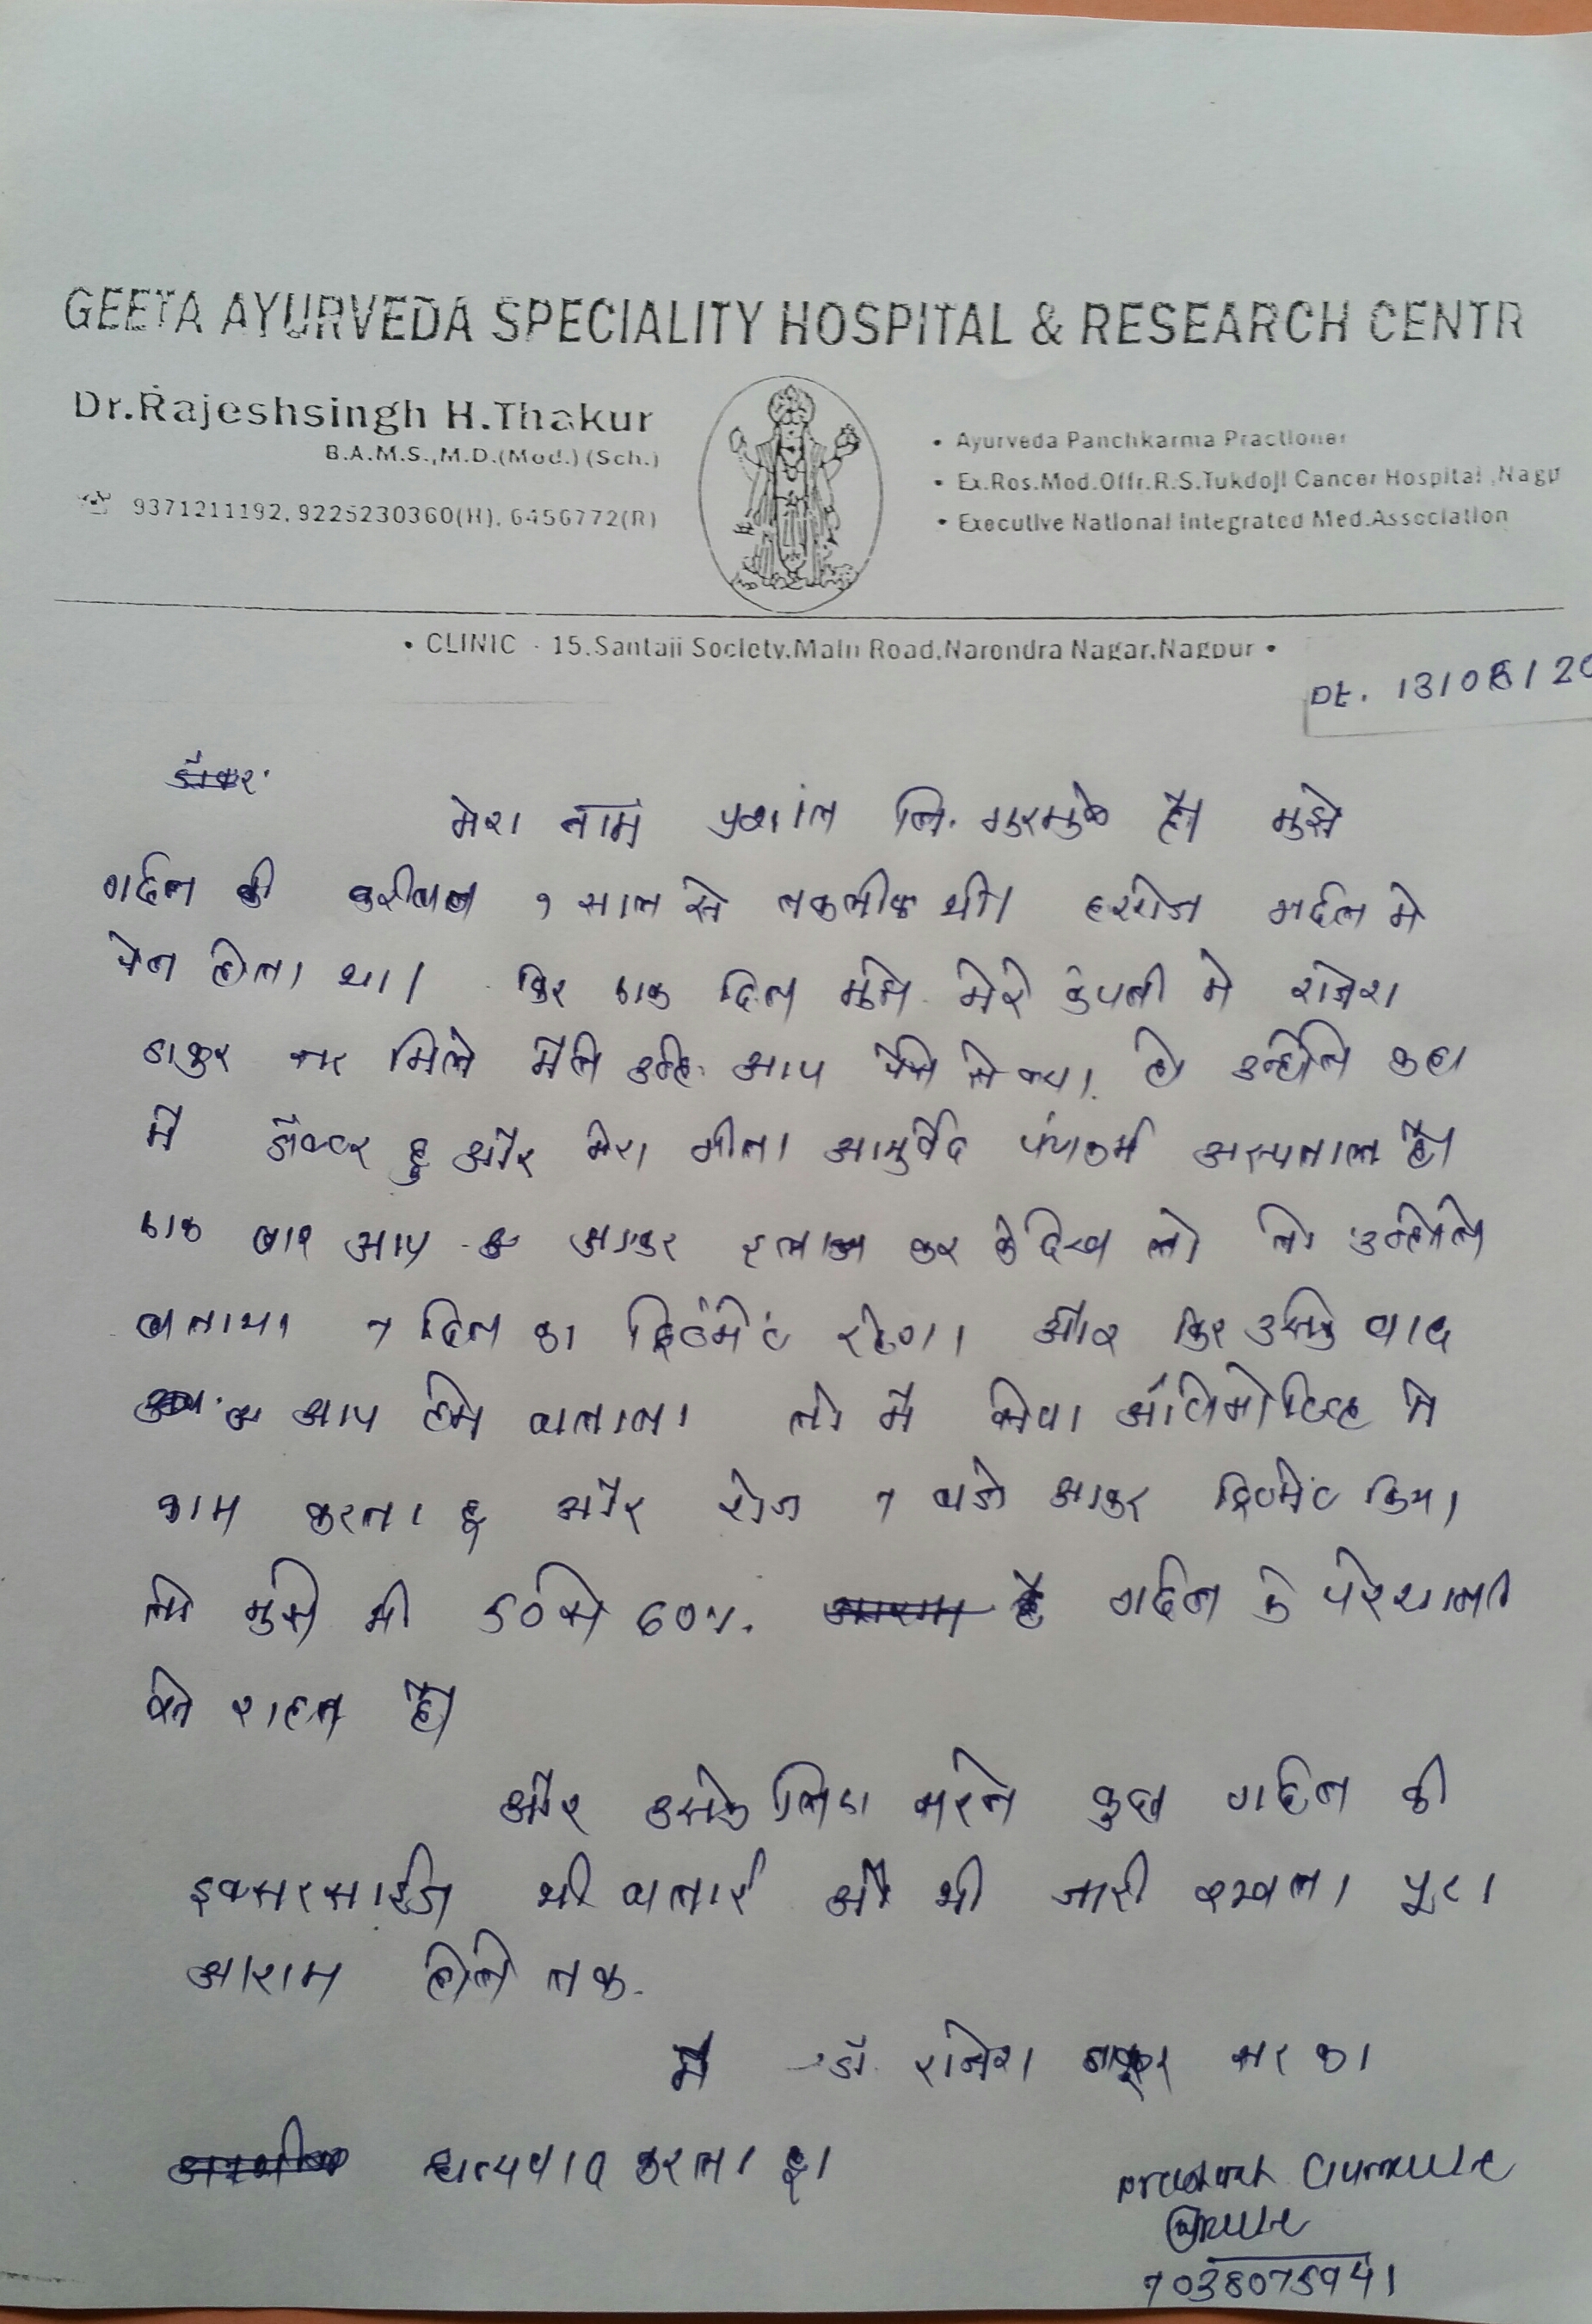 GEETA AYURVEDA SPECIALITY HOSPITAL & RESEARCH CENTR
Dr.Rajeshsingh H.Thakur
B.A.M.S.,M.D.(Med.) (Sch.)
9371211192, 9225230360(H), 6456772(R)
• Ayurveda Panchkarma Practioner
• Ex.Res.Med.Offr.R.S.Tukdoji Cancer Hospital ,Nagp
• Executive National Integrated Med.Association
• CLINIC - 15.Santaji Society.Main Road,Narendra Nagar,Nagpur •
Dt. 13/08/20
मेरा नाम प्रशांत नि. गुरमुळे है। मुझे
गर्दन की करीबन १ साल से तकलीफ थी। हररोज गर्दन मे
पेन होता था। फिर एक दिन मुझे मेरे कंपनी मे राजेश
ठाकुर सर मिले मैने उन्हे आप कैसे हो उन्होने कहा
मै डॉक्टर हु और मेरा गीता आयुर्वेद पंचकर्म अस्पताल है।
एक बार आप आकर इलाज कर के देख लो तो उन्होने
बताया ७ दिन का ट्रिटमेंट रहेगा और फिर उसके बाद
आप हमे बताना तो मै सेवा ऑटोमोटिव्ह मे
काम करता हु और रोज ७ बजे आकर ट्रिटमेंट किया
तो मुझे भी 50 से 60%. गर्दन के परेशानी
से राहत है।
और उसके लिए सरने कुछ गर्दन की
इक्सरसाईज भी बताई ओ भी जारी रखना पूरा
आराम होने तक.
मै डॉ. राजेश ठाकूर सर का
धन्यवाद करता हु।
Prashant Gurmule
7038075941